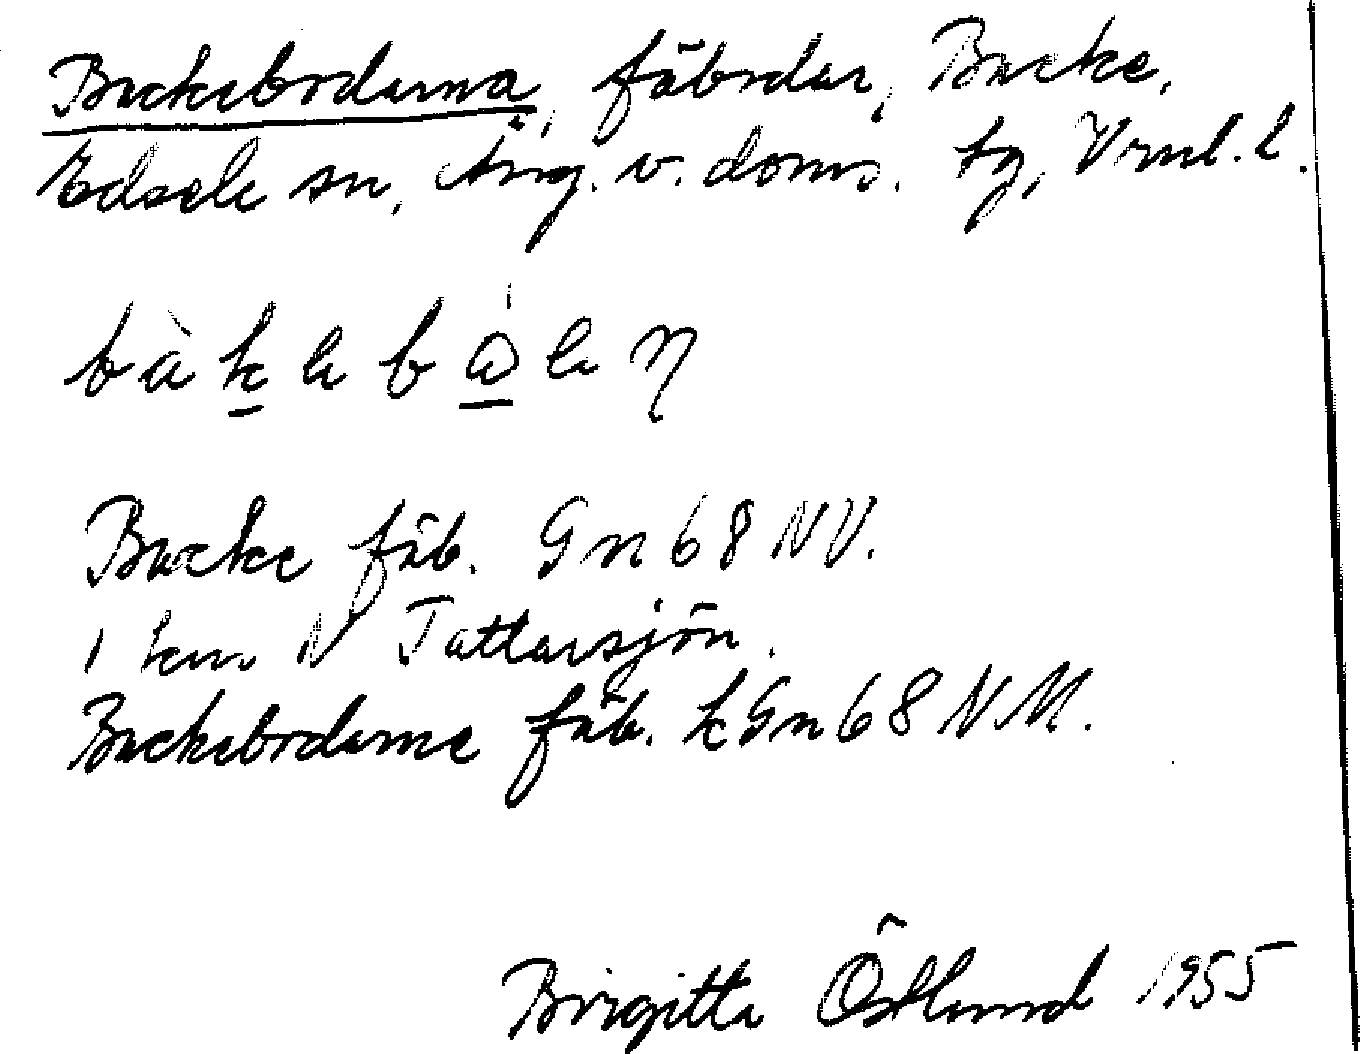 Backebodarna, fäbodar, Backe,
Edsele sn, Ång. v. doms. tg, Vrnl. l.
bàkabòlan
Backe fäb. Gn 68 NV.
1 km N Tattarsjön.
Backebodarne fäb. kGn 68 NM.
Birgitta Östlund 1955